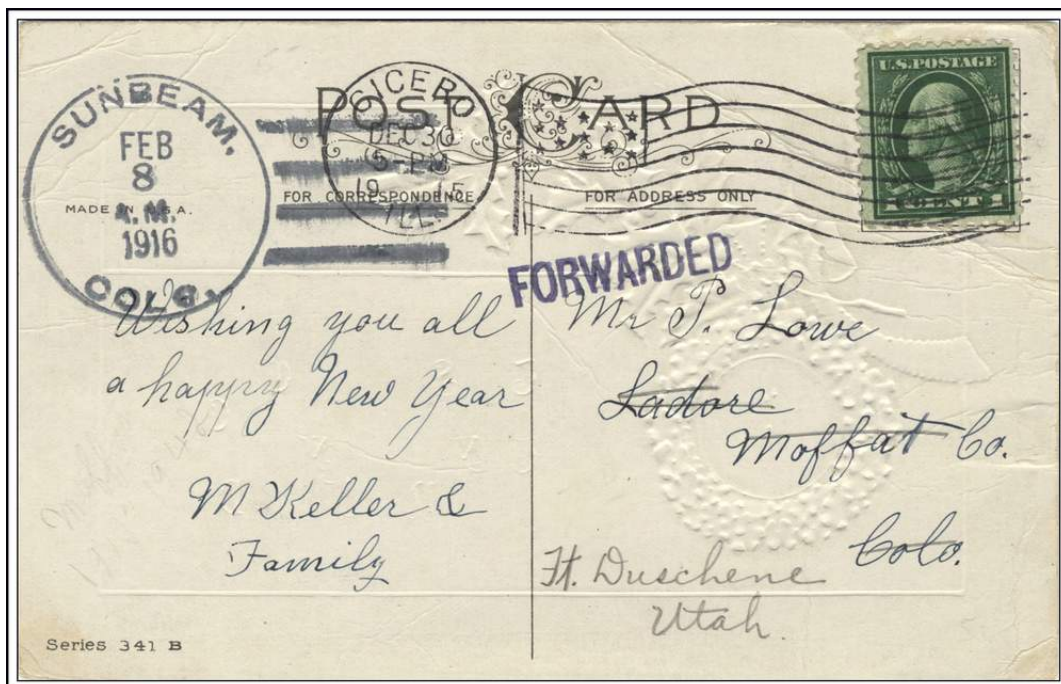 SUNBEAM,
FEB
8
A.M.
1916
COLO.
CICERO
DEC 30
5-PM
19 15
ILL.
POST CARD
U.S. POSTAGE
1 CENT 1
MADE IN U.S.A.
FOR CORRESPONDENCE
FOR ADDRESS ONLY
FORWARDED
Wishing you all
a happy New Year
M Keller &
Family
Mr
Lowe
Ladore
Moffat Co.
Colo.
Ft. Duschene
Utah.
Series 341 B